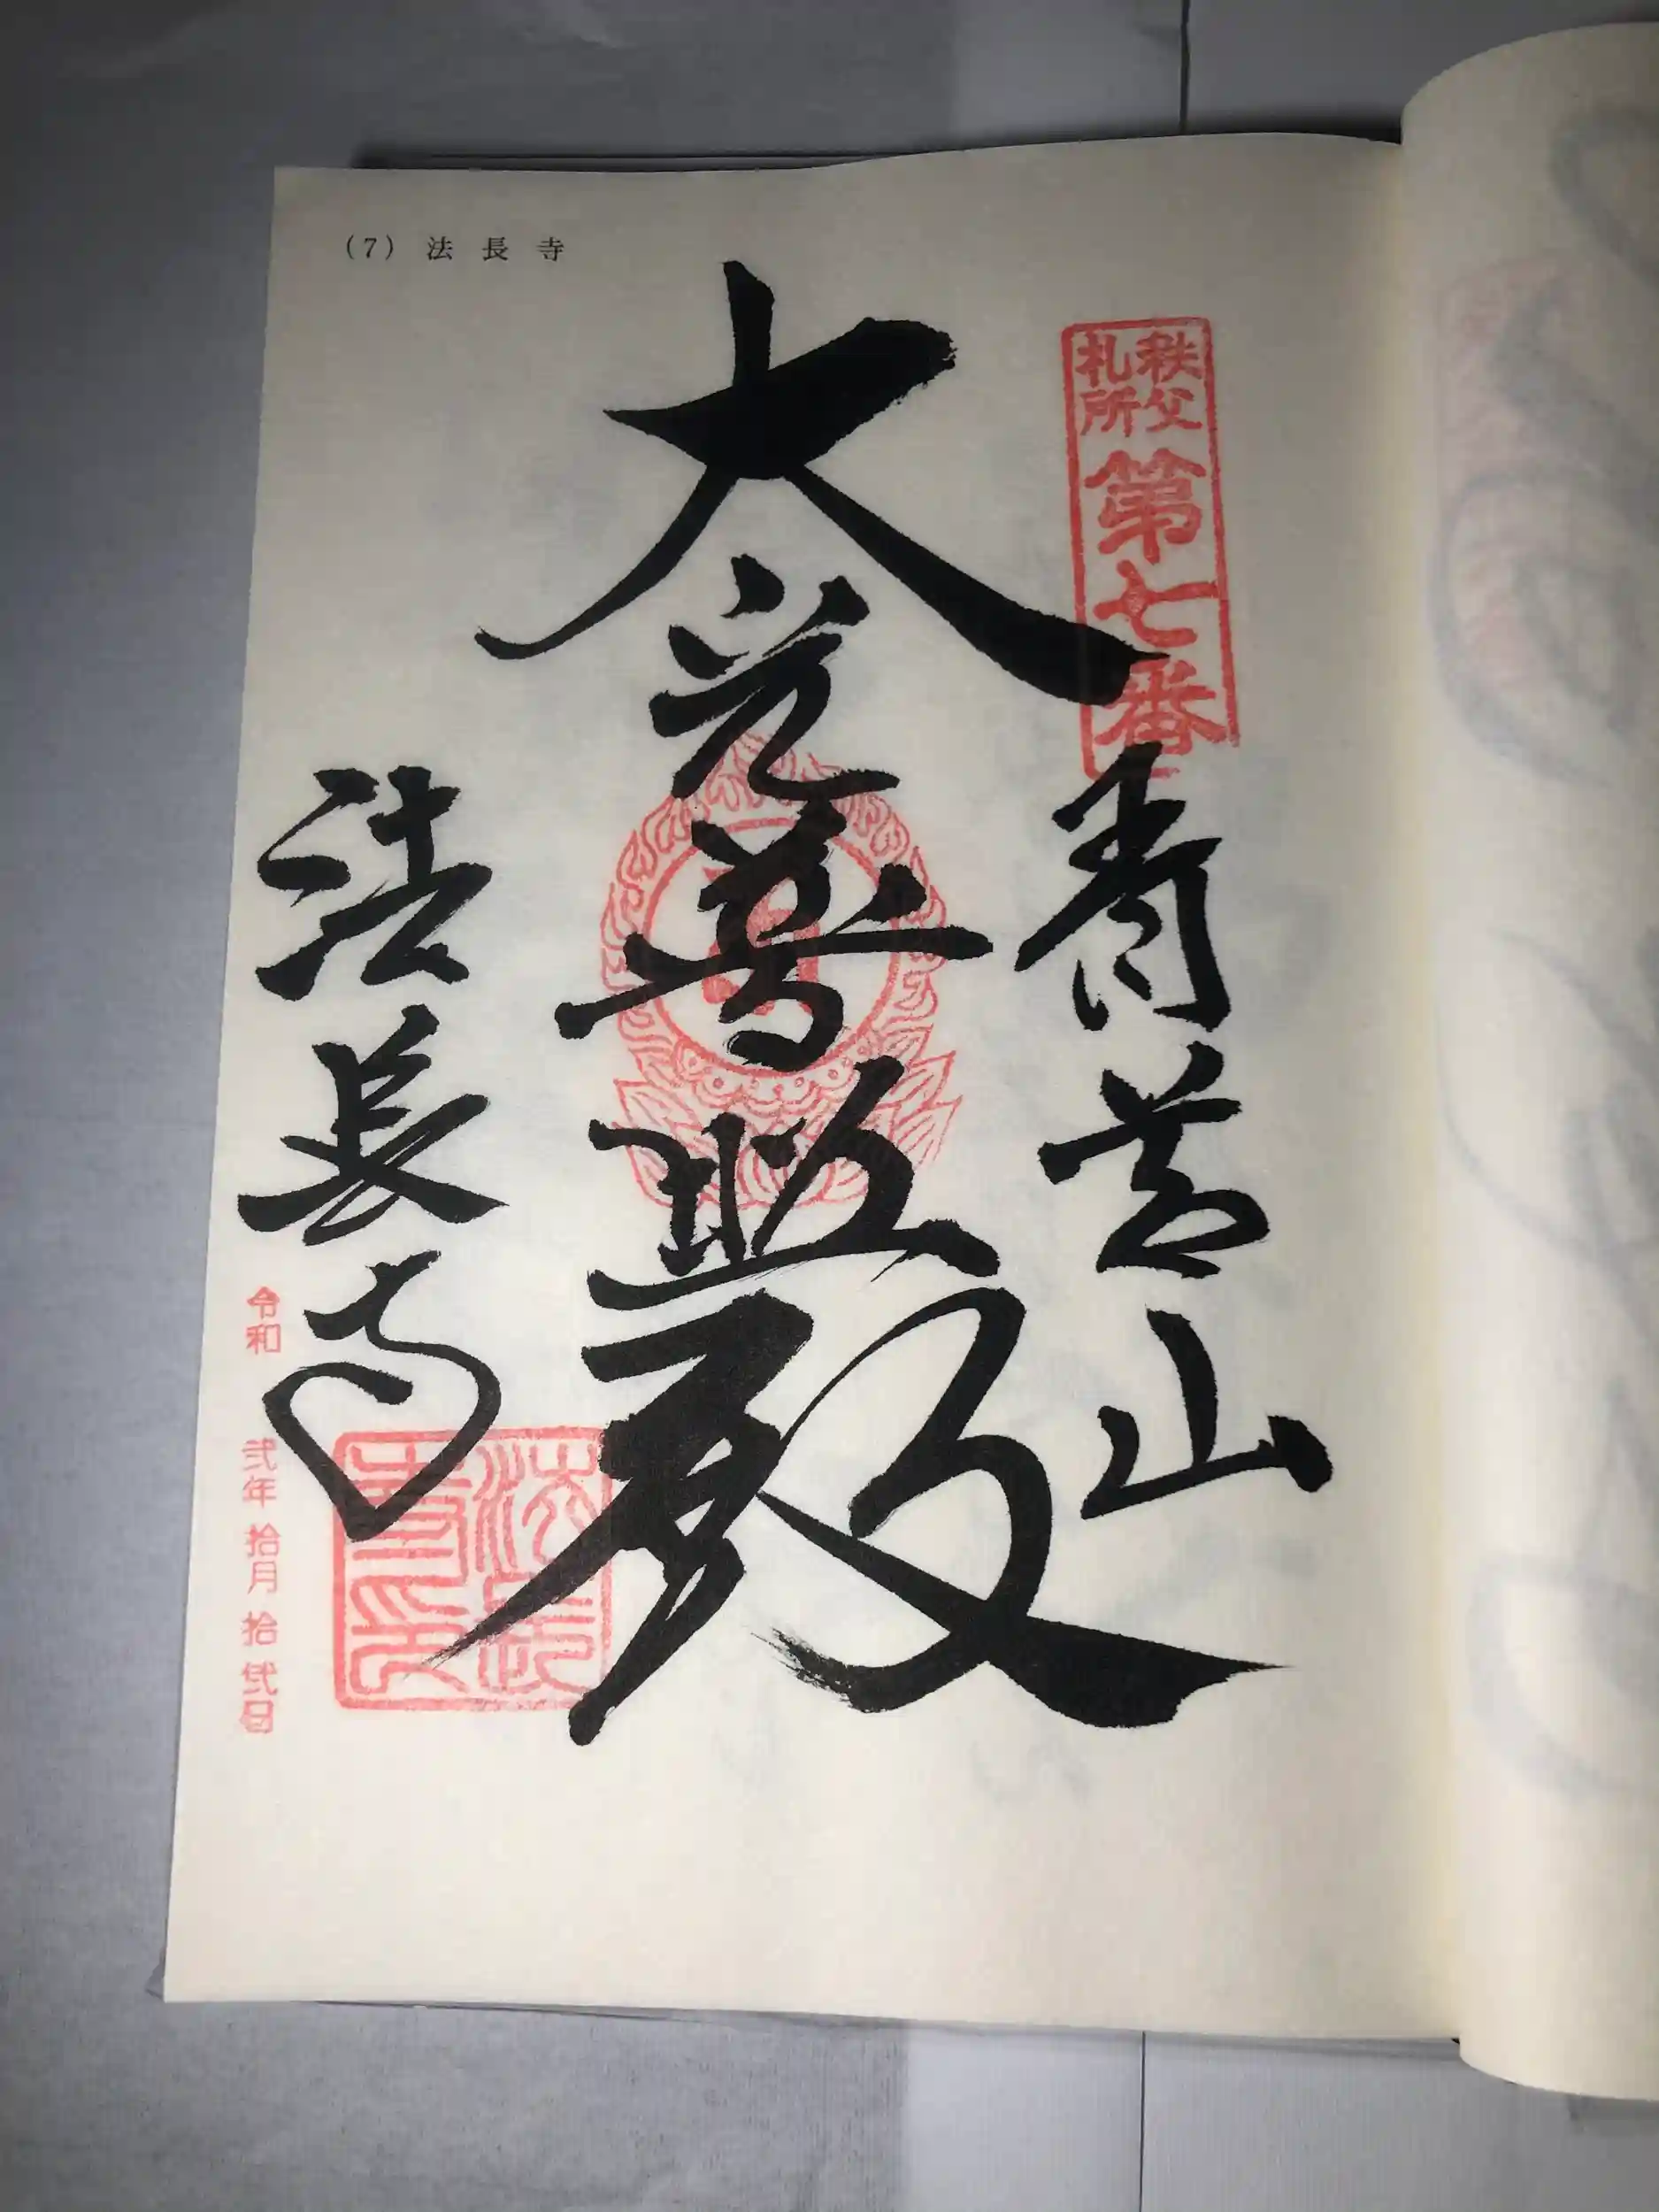 (7) 法長寺
秩父
札所
第七番
青苔山
大光普照殿
法長寺
法長寺印
令和 弐年 拾月 拾弐日